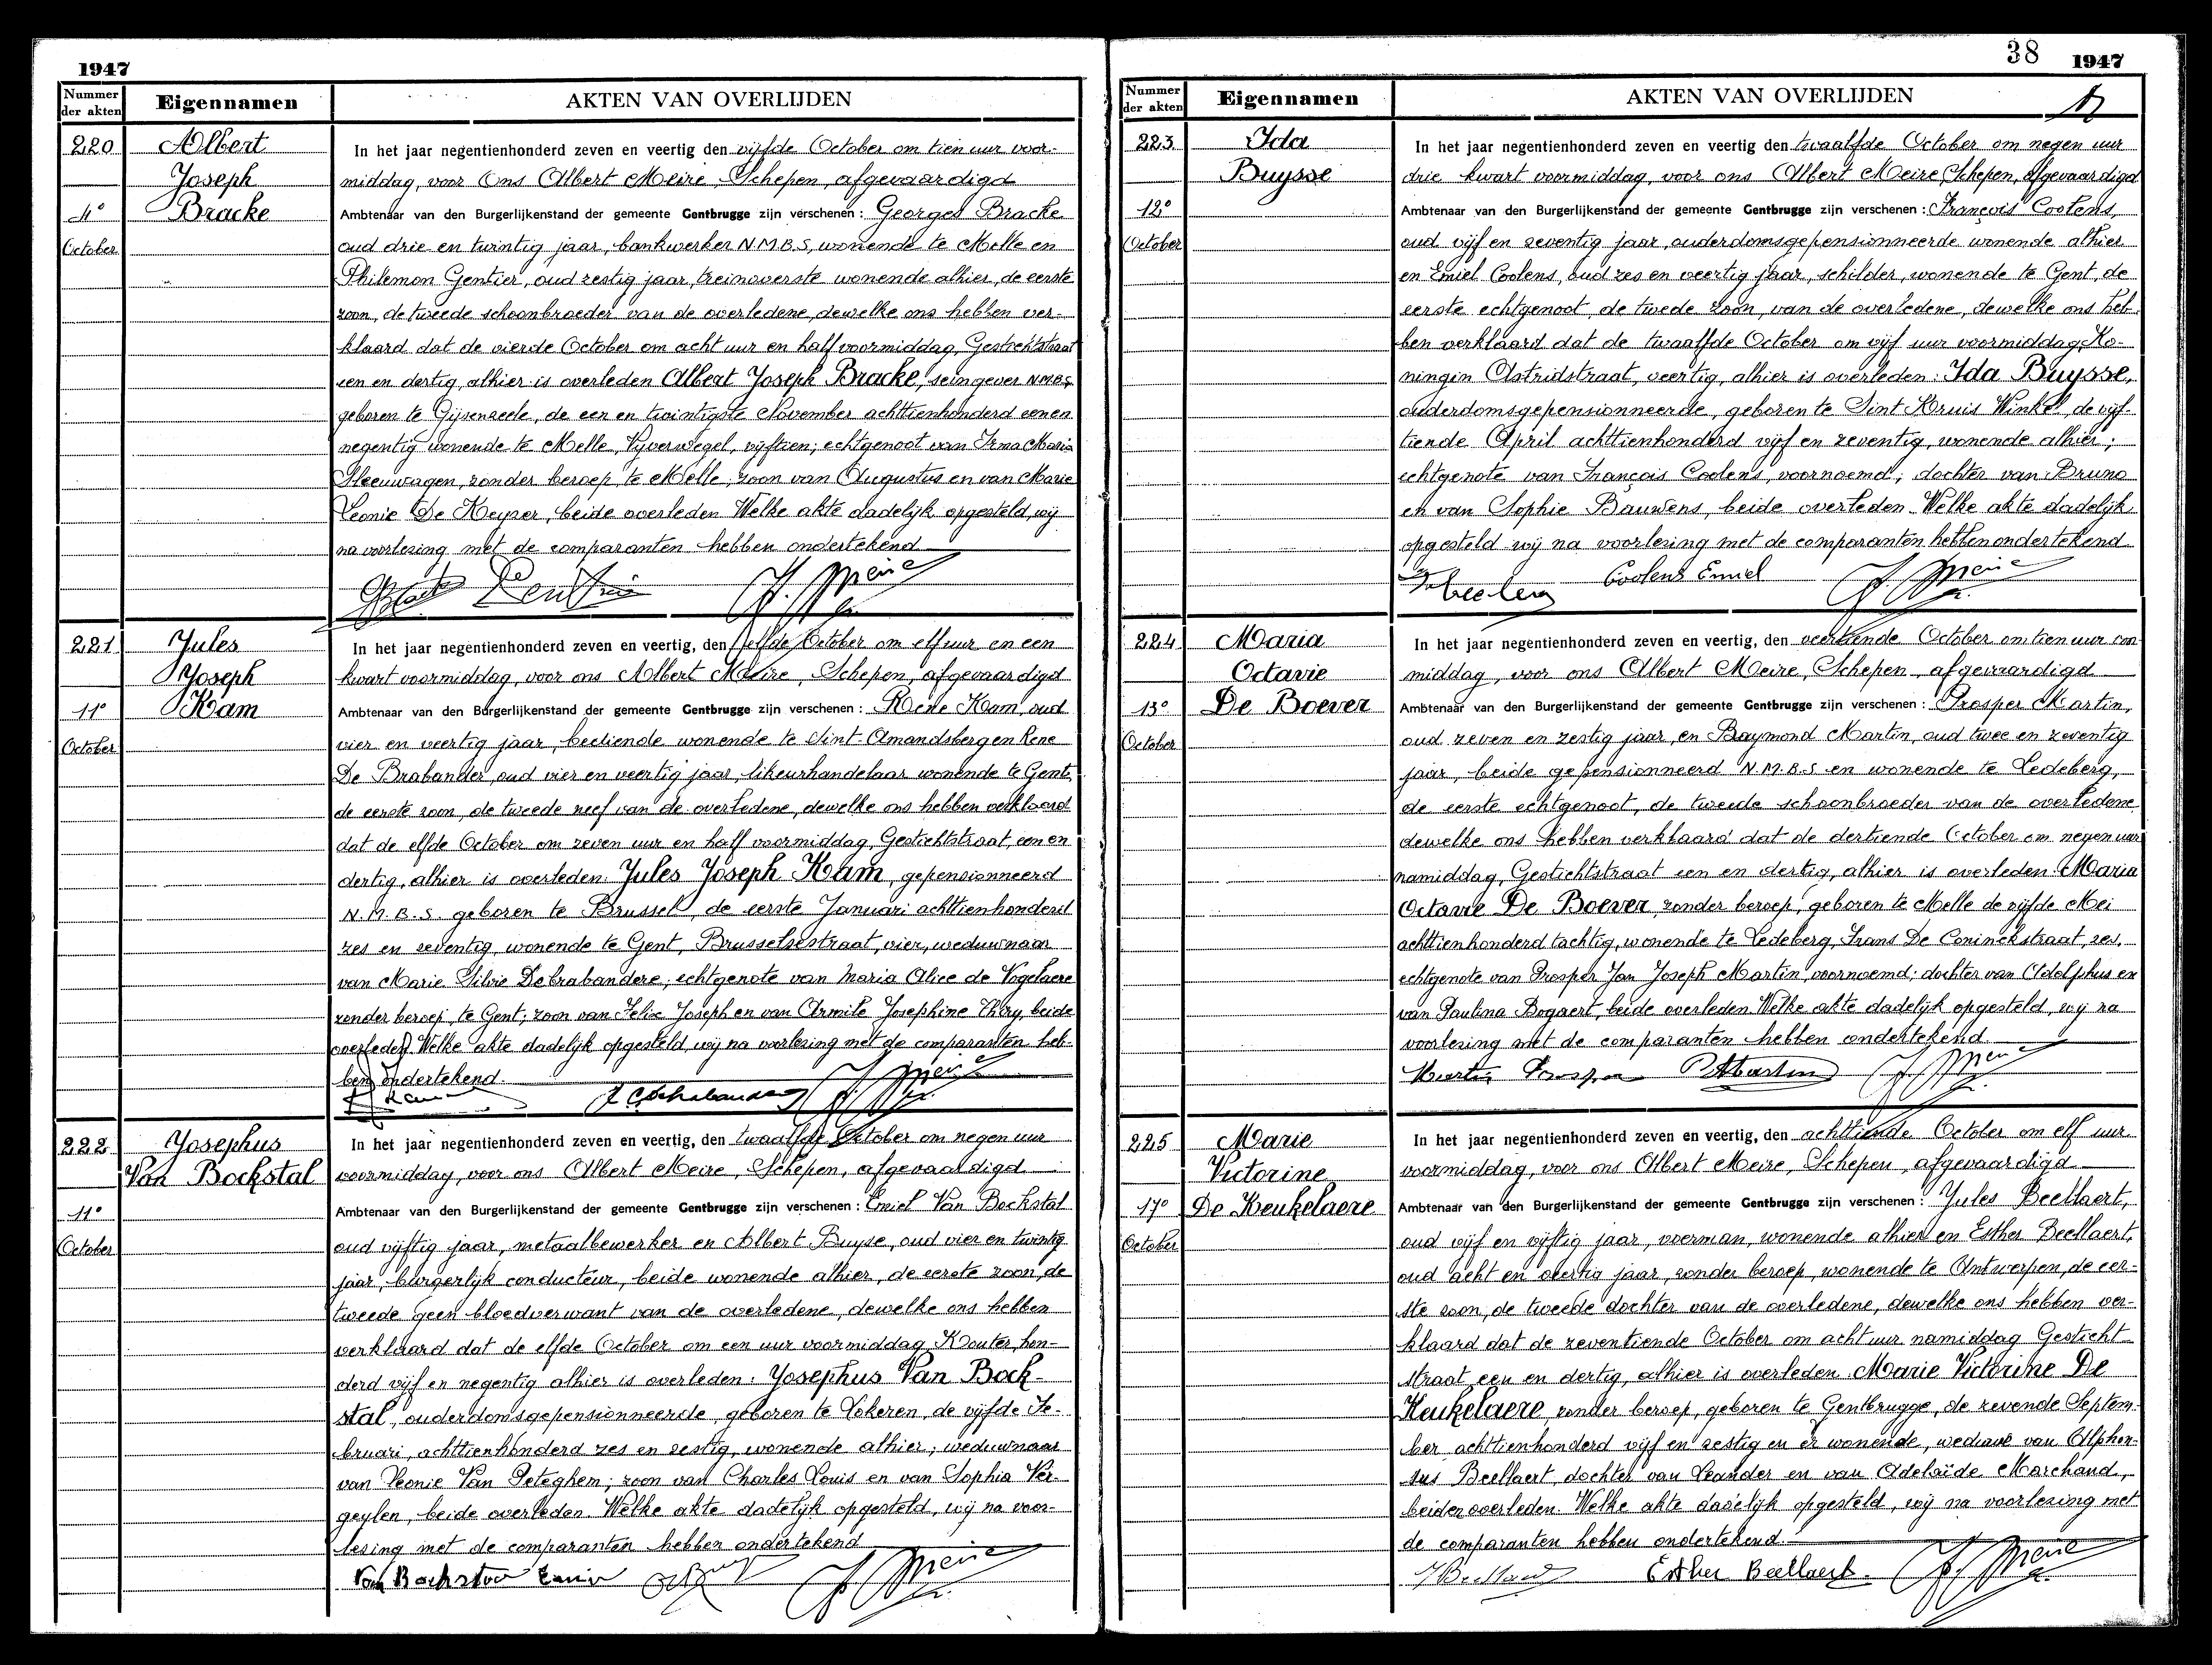 1947
Nummer der akten
Eigennamen
AKTEN VAN OVERLIJDEN
220
4°
October
Albert
Joseph
Bracke
In het jaar negentienhonderd zeven en veertig den vijfde October om tien uur voor-
middag, voor Ons Albert Meire, Schepen, afgevaardigd
Ambtenaar van den Burgerlijkenstand der gemeente Gentbrugge zijn verschenen: Georges Bracke
oud drie en twintig jaar, bankwerker N.M.B.S, wonende te Melle en
Philemon Gentier, oud zestig jaar, treinoverste wonende alhier, de eerste
zoon, de tweede schoonbroeder van de overledene, dewelke ons hebben ver-
klaard dat de vierde October om acht uur en half voormiddag, Gestichtstraat
een en dertig, alhier is overleden Albert Joseph Bracke, seingever N.M.B.S.
geboren te Gijsenzeele, de een en twintigste November achttienhonderd een en
negentig wonende te Melle, Vijverwegel, vijftien; echtgenoot van Irma Maria
Sleeuwagen, zonder beroep, te Melle; zoon van Augustus en van Marie
Leonie De Keyzer, beide overleden Welke akte dadelijk opgesteld, wij
na voorlezing met de comparanten hebben ondertekend
221
11°
October
Jules
Joseph
Kam
In het jaar negentienhonderd zeven en veertig, den elfde October om elf uur en een
kwart voormiddag, voor ons Albert Meire, Schepen, afgevaardigd
Ambtenaar van den Burgerlijkenstand der gemeente Gentbrugge zijn verschenen: Réné Kam, oud
vier en veertig jaar, bediende wonende te Sint-Amandsberg en Rene
De Brabander, oud vier en veertig jaar, likeurhandelaar wonende te Gent,
de eerste zoon, de tweede neef van de overledene, dewelke ons hebben verklaard
dat de elfde October om zeven uur en half voormiddag, Gestichtstraat, een en
dertig, alhier is overleden: Jules Joseph Kam, gepensionneerd
N.M.B.S. geboren te Brussel, de eerste Januari achttienhonderd
zes en zeventig, wonende te Gent, Brusselsestraat, vier, weduwnaar
van Marie Silvie Debrabandere; echtgenote van Maria Alice de Vogelaere
zonder beroep, te Gent; zoon van Felix Joseph en van Armite Josephine Thiry, beide
overleden. Welke akte dadelijk opgesteld, wij na voorlezing met de comparanten heb-
ben ondertekend.
222
11°
October
Josephus
Van Bockstal
In het jaar negentienhonderd zeven en veertig, den twaalfde October om negen uur
voormiddag, voor ons Albert Meire, Schepen, afgevaardigd
Ambtenaar van den Burgerlijkenstand der gemeente Gentbrugge zijn verschenen: Emiel Van Bockstal
oud vijftig jaar, metaalbewerker en Albert Buyse, oud vier en twintig
jaar, burgerlijk conducteur, beide wonende alhier, de eerste zoon, de
tweede geen bloedverwant van de overledene, dewelke ons hebben
verklaard dat de elfde October om een uur voormiddag Kouter, hon-
derd vijf en negentig alhier is overleden: Josephus Van Bock-
stal, ouderdomsgepensionneerde, geboren te Lokeren, de vijfde Fe-
bruari, achttienhonderd zes en zestig, wonende alhier; weduwnaar
van Leonie Van Peteghem; zoon van Charles Louis en van Sophia Ver-
geylen, beide overleden. Welke akte dadelijk opgesteld, wij na voor-
lezing met de comparanten hebben ondertekend
Van Bockstal Emiel
38
1947
Nummer der akten
Eigennamen
AKTEN VAN OVERLIJDEN
223
12°
October
Ida
Buysse
In het jaar negentienhonderd zeven en veertig den twaalfde October om negen uur
drie kwart voormiddag, voor ons Albert Meire, Schepen, afgevaardigd
Ambtenaar van den Burgerlijkenstand der gemeente Gentbrugge zijn verschenen: François Coolens,
oud vijf en zeventig jaar, ouderdomsgepensionneerde wonende alhier
en Emiel Coolens, oud zes en veertig jaar, schilder, wonende te Gent, de
eerste echtgenoot, de twede zoon, van de overledene, dewelke ons heb-
ben verklaard dat de twaalfde October om vijf uur voormiddag, Ko-
ningin Astridstraat, veertig, alhier is overleden: Ida Buysse,
ouderdomsgepensionneerde, geboren te Sint Kruis Winkel, de vijf-
tiende April achttienhonderd vijf en zeventig, wonende alhier;
echtgenote van François Coolens, voornoemd; dochter van Bruno
en van Sophie Bauwens, beide overleden. Welke akte dadelijk
opgesteld wij na voorlezing met de comparanten hebben ondertekend
Coolens Emiel
224
13°
October
Maria
Octavie
De Boever
In het jaar negentienhonderd zeven en veertig, den veertiende October om tien uur voor
middag, voor ons Albert Meire, Schepen, afgevaardigd
Ambtenaar van den Burgerlijkenstand der gemeente Gentbrugge zijn verschenen: Prosper Martin,
oud zeven en zestig jaar, en Raymond Martin, oud twee en zeventig
jaar, beide gepensionneerd N.M.B.S en wonende te Ledeberg,
de eerste echtgenoot, de tweede schoonbroeder van de overledene
dewelke ons hebben verklaard dat de dertiende October om negen uur
namiddag, Gestichtstraat een en dertig, alhier is overleden: Maria
Octavie De Boever, zonder beroep, geboren te Melle de vijfde Mei
achttienhonderd tachtig, wonende te Ledeberg, Frans De Coninckstraat, zes,
echtgenote van Prosper Jan Joseph Martin, voornoemd; dochter van Adolphus en
van Paulina Bogaert, beide overleden. Welke akte dadelijk opgesteld, wij na
voorlezing met de comparanten hebben ondertekend.
Martin Prosper
225
17°
October
Marie
Victorine
De Keukelaere
In het jaar negentienhonderd zeven en veertig, den achttiende October om elf uur
voormiddag, voor ons Albert Meire, Schepen, afgevaardigd
Ambtenaar van den Burgerlijkenstand der gemeente Gentbrugge zijn verschenen: Jules Beellaert,
oud vijf en vijftig jaar, voerman, wonende alhier en Esther Beellaert,
oud acht en veertig jaar, zonder beroep, wonende te Antwerpen, de eer-
ste zoon, de tweede dochter van de overledene, dewelke ons hebben ver-
klaard dat de zeventiende October om acht uur namiddag Gesticht
straat, een en dertig, alhier is overleden Marie Victorine De
Keukelaere, zonder beroep, geboren te Gentbrugge, de zevende Septem-
ber achttienhonderd vijf en zestig en er wonende, weduwe van Alphon-
sus Beellaert, dochter van Leander en van Adelaïde Marchand,
beiden overleden. Welke akte dadelijk opgesteld, wij na voorlezing met
de comparanten hebben ondertekend.
J Beellaert
Esther Beellaert.